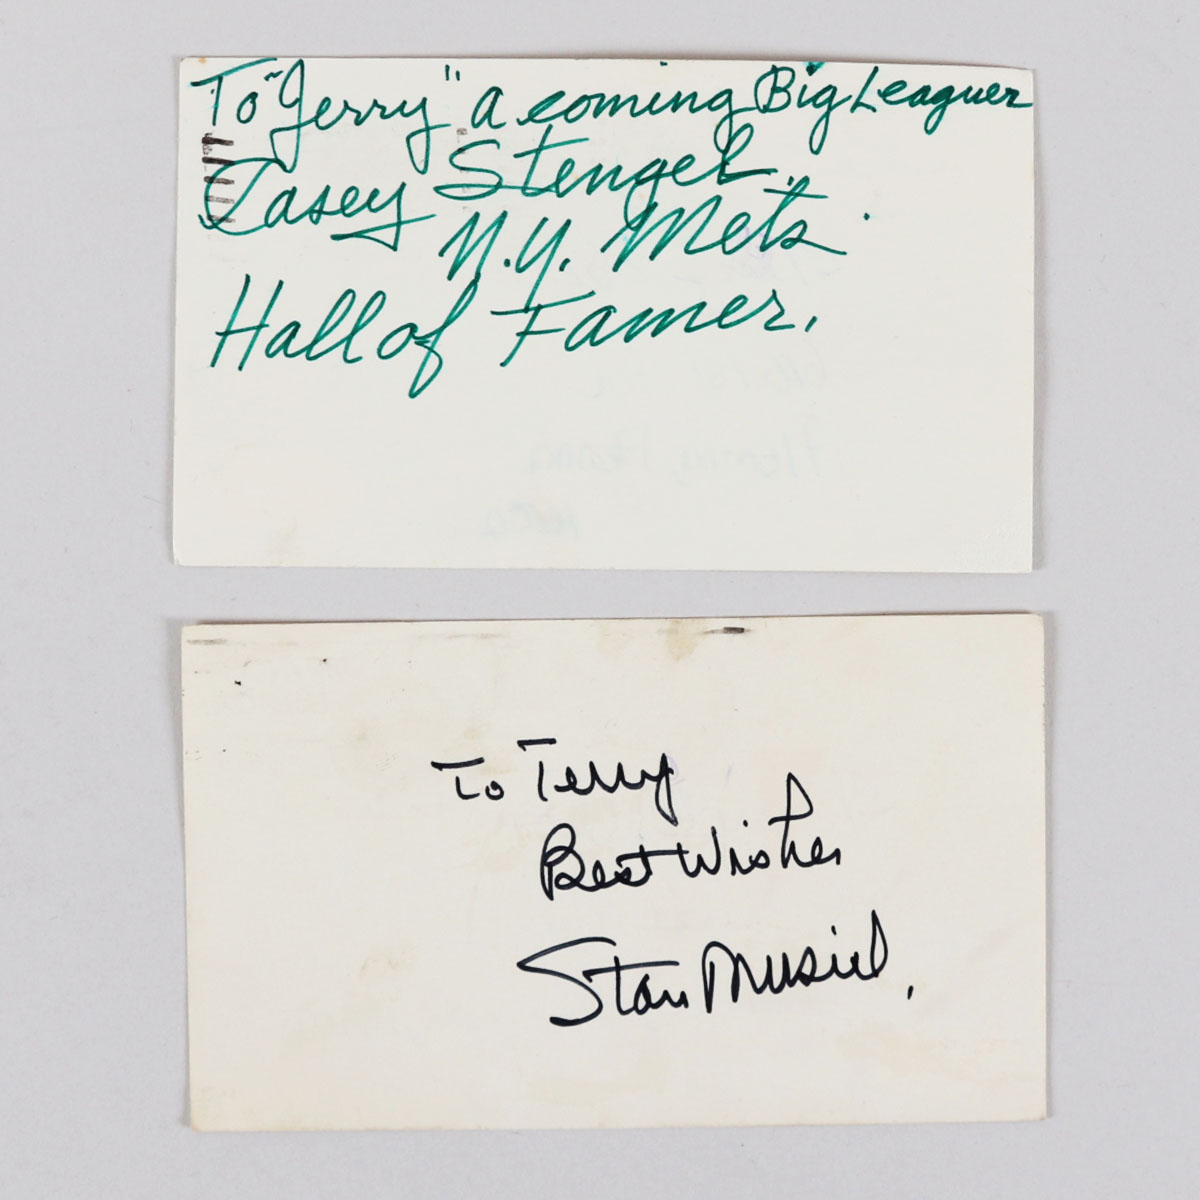 To "Jerry" a coming Big Leaguer
Casey Stengel.
N.Y. Mets.
Hall of Famer.
To Terry
Best Wishes
Stan Musial